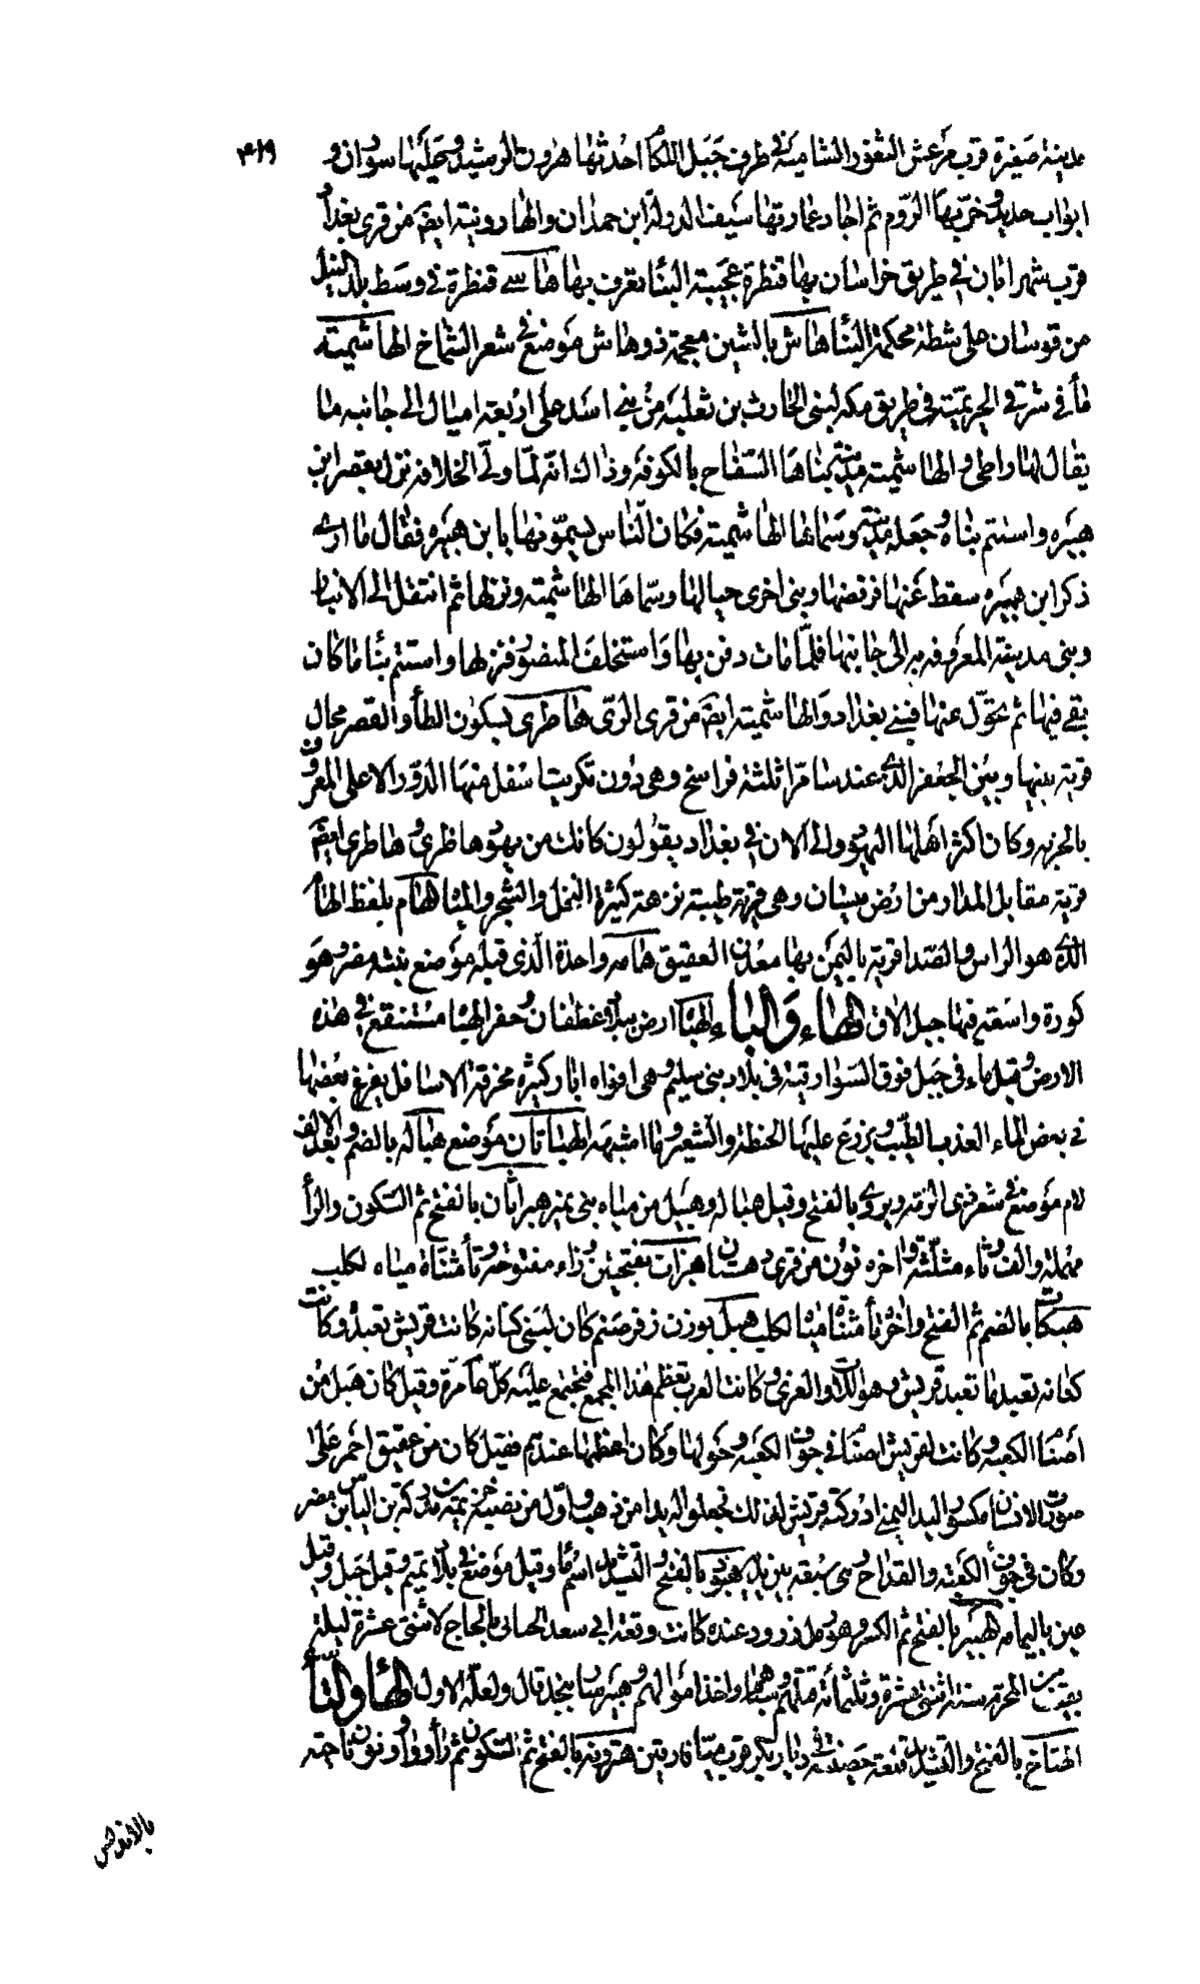 ۴۱۹
مدينة صغيرة قرب مرعش الثغور الشامية في طرف جبل اللكام احدثها هرون الرشيد وجعل لها سوران و
ابواب حديد وخربها الروم ثم اعاد عمارتها سيف الدولة ابن حمدان والهارونية ايضا من قرى بغداد
قرب شهرابان في طريق خراسان بها قنطرة عجيبة البنا تعرف بها هاسے قنطرة في وسط بلد النيل
من قوسان على شطه محكمة البنا هاش بالشين معجمة ذو هاش موضع في شعر الشماخ الهاشمية
مأ في شرقي الخزيمية في طريق مكه لبنى الحارث بن ثعلبة من بني اسد على اربعة اميال الى جانبه ما
يقال لها اراطى والهاشمية مدينة بناها السفاح بالكوفه وذاك انه لما ولى الخلافه نزل بقصر ابن
هبيره واستتم بناه وجعله مدينة وسماها الهاشمية فكان الناس يسمونها بابن هبيره فقال ما ارى
ذكر ابن هبيره سقط عنها فرفضها وبنى اخرى حيالها وسماها الهاشمية ونزلها ثم انتقل الى الانبار
وبنى مدينته المعروفه به الى جانبها فلما مات دفن بها واستخلف المنصور فنزلها واستتم بنأ ما كان
بقى فيها ثم تحول عنها فبنى بغداد والهاشمية ايضا من قرى الرى هاطرى بسكون الطأ والقصر محال
قرية بينها وبين الجعفرى الذى عند سامرا ثلثة فراسخ وهى دون تكريت اسفل منها الدور الاعلى المعروف
بالخربه وكان اكثر اهلها اليهود والى الان في بغداد يقولون كانك من يهود هاطرى وهاطرى ايضا
قرية مقابل المذار من ارض ميسان وهى قرية طيبة نزهة كثيرة النخل والشجر والمياه هام بلفظ الهام
الذى هو الراس والصدا قرية باليمن بها معدن العقيق هامه واحدة الذى قبله موضع بتيه مصر وهو
كورة واسعة فيها جبل الاق الهاء والباء الهبا ارض ببلاد غطفان وحفر الهبا مستنقع في هذه
الارض وقيل ماء في جبل فوق السوارقية في بلاد بنى سليم وهى افواه ابار كثيره مخرقة الاسافل يفرغ بعضها
في بعض الماء العذب الطيب ويزرع عليها الحنطة والشعير وما اشبهه الهباتان موضع هباله بالضم وبعد الالف
لام موضع في شعر ذى الرمه ويروى بالفتح وقيل هباله وهبيل من مياه بنى نمير هبراثان بالفتح ثم السكون والرأ
مهملة والف وثاء مثلثة واخره نون من قرى دهستان هبرات بفتحتين وراء مفتوحة وتأ مثناة مياه لكلب
هبكات بالضم ثم الفتح واخره تأ مثناة مياه لكلب هبل بوزن زفر صنم كان لبنى كنانه كانت قريش تعبده وكانت
كنانه تعبد ما تعبد قريش وهو اللات والعزى وكانت العرب تعظم هذا المجمع فتجتمع عليه كل عام مرة وقيل كان هبل من
اصنام الكعبة وكانت لقريش اصنام في جوف الكعبه وحولها وكان اعظمها عندهم فقيل كان من عقيق احمر على
صورة الانسان مكسور اليد اليمنى ادركته قريش كذلك فجعلوا له يدا من ذهب واول من نصبه خزيمة بن مدركة بن الياس بن مضر
وكان في جوف الكعبة والقداح سبعة بين يديه هبود بالفتح والتشديد اسم ماء وقيل موضع في بلاد تميم وقيل جبل وقيل
عين باليمامه هبير بالفتح ثم الكسر وهو رمل زرود عنده كانت وقعة ابى سعيد الجنابى بالحاج لاثنتى عشرة ليلة
بقيت من المحرم سنة اثنتى عشرة وثلثمائة قتلهم وسباهم واخذ اموالهم وهبير سيار بنجد قال ولعله الاول الهأ والتأ
الهتاخ بالفتح والتشديد قلعة حصينة في ديار بكر قرب ميافارقين هترونه بالفتح ثم السكون ثم رأ وواو ونون ناحية
بالاندلس